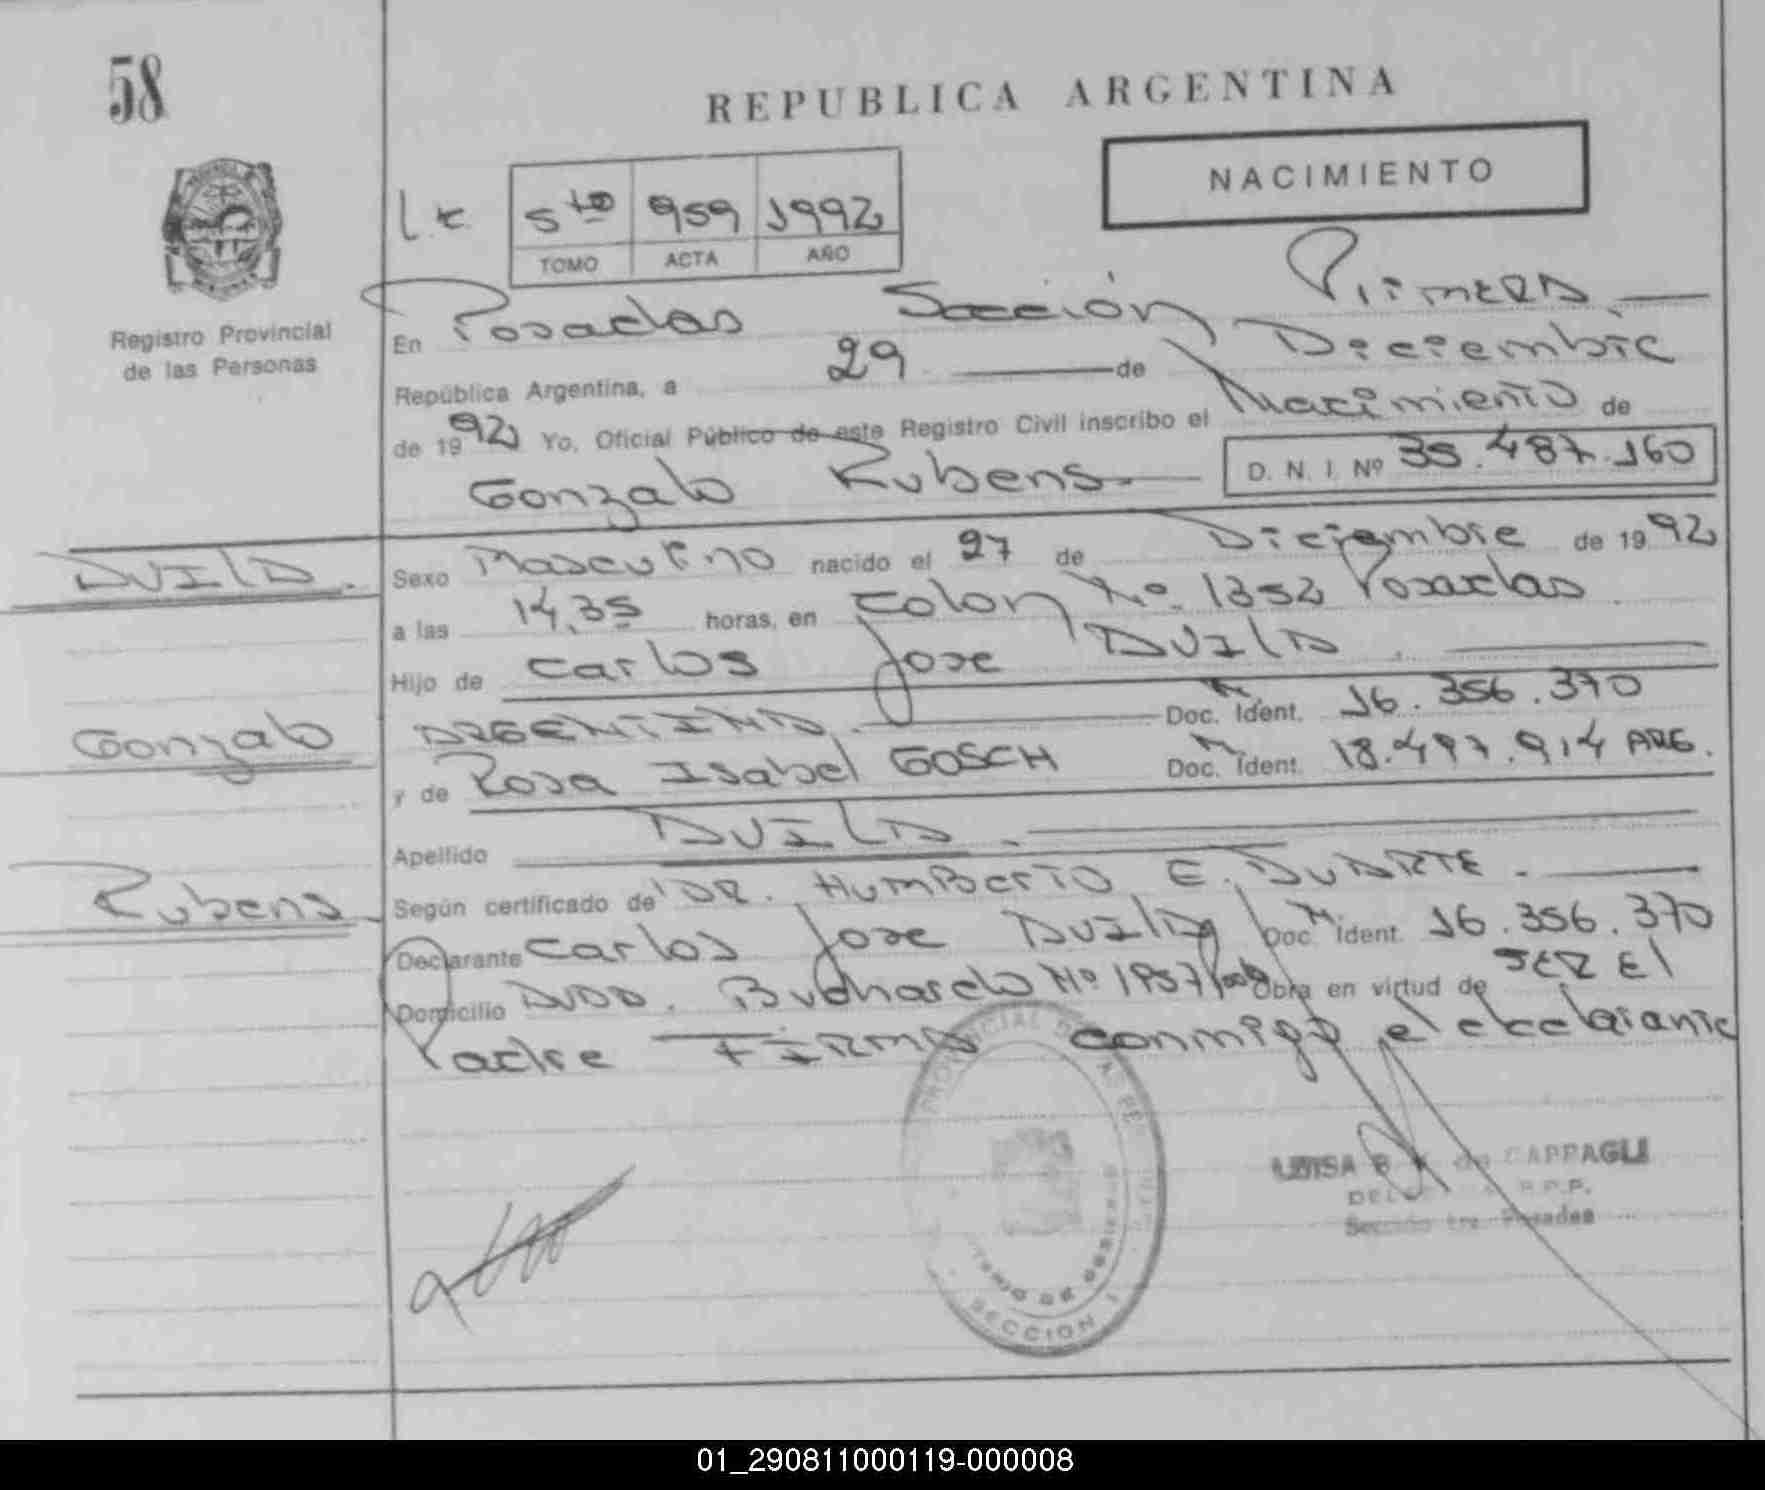 58
REPUBLICA ARGENTINA
NACIMIENTO
5to 959 1992
TOMO ACTA AÑO
Registro Provincial
de las Personas
En Posadas Sección Primera
República Argentina, a 29 de Diciembre
de 1992 Yo, Oficial Público de este Registro Civil inscribo el Nacimiento de
Gonzalo Rubens D. N. I. Nº 35.487.160
DUILA. Sexo Masculino nacido el 27 de Diciembre de 1992
a las 14,35 horas, en Colon Nº 1352 Posadas
Hijo de Carlos Jose DUILA
Gonzalo ARGENTINA. Doc. Ident. 16.356.370
y de Rosa Isabel GOSCH Doc. Ident. 18.497.914 ARG.
Apellido DUILA.
Rubens Según certificado de DR. HUMBERTO E. DUARTE.
Declarante Carlos Jose DUILA Doc. Ident. 16.356.370
Domicilio AVDA. Buchardo Nº 1957 Obra en virtud de SER El
Padre FIRMA conmigo el declarante
LUISA de CAPPAGLI
R.P.P.
Sección 1ra. Posadas
SECCION 1
01_290811000119-000008